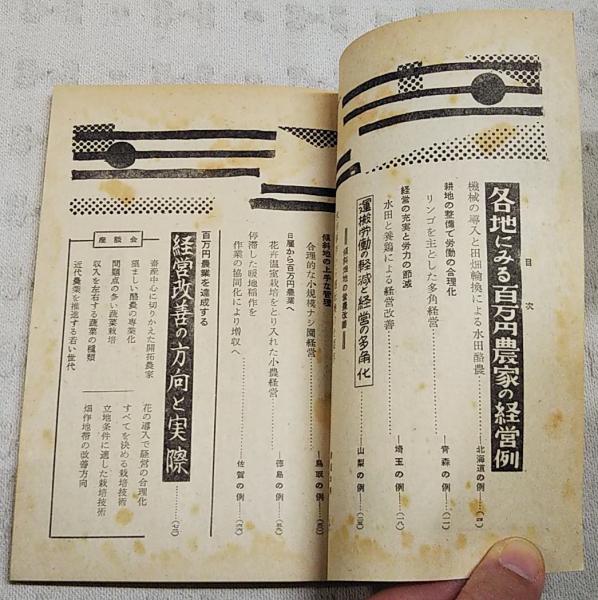 目次
各地にみる百万円農家の経営例
機械の導入と田畑輪換による水田酪農……北海道の例…(四)
耕地の整備で労働の合理化
リンゴを主とした多角経営……青森の例…(一一)
経営の充実と労力の節減
水田と養鶏による経営改善……埼玉の例…(一八)
運搬労働の軽減と経営の多角化
……山梨の例…
傾斜地の上手な管理
合理的な小規模ナシ園経営……鳥取の例…
日雇から百万円農業へ
花卉温室栽培をとり入れた小農経営……徳島の例…
停滞した暖地稲作を
作業の協同化により増収へ……佐賀の例…
百万円農業を達成する
経営改善の方向と実際……
座談会
畜産中心に切りかえた開拓農家
望ましい酪農の専業化
問題点の多い蔬菜栽培
収入を左右する蔬菜の種類
近代農業を推進する若い世代
花の導入で経営の合理化
すべてを決める栽培技術
立地条件に適した栽培技術
畑作地帯の改善方向